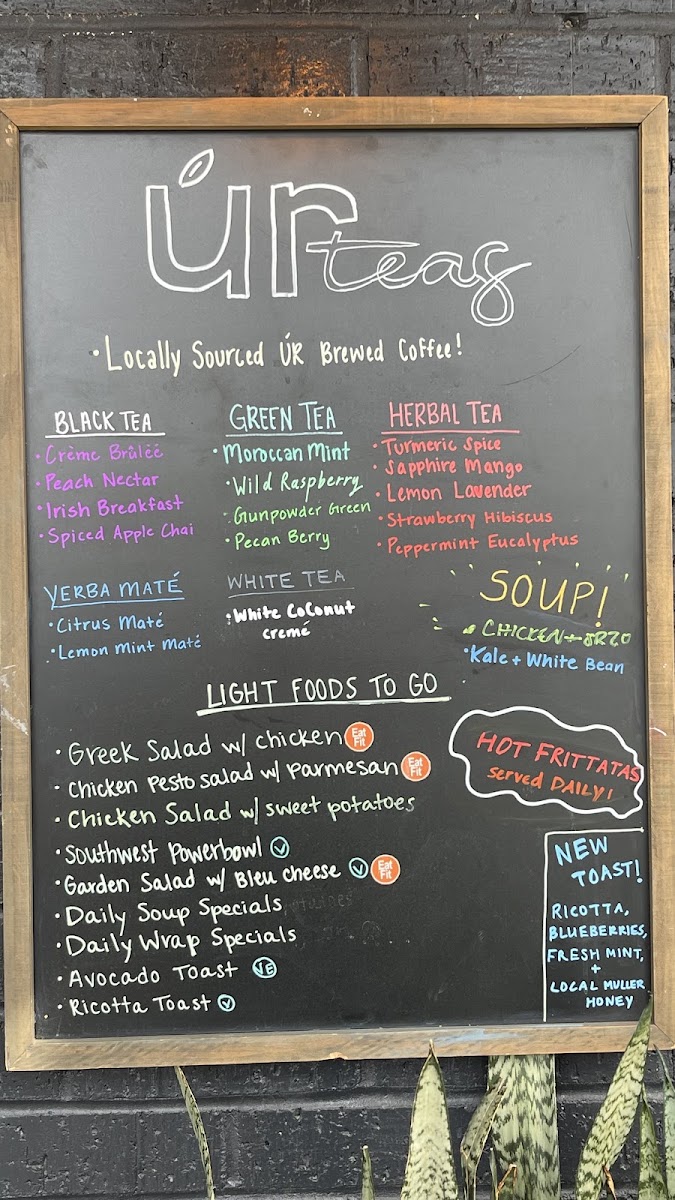 úr teas
• Locally Sourced ÚR Brewed Coffee!
BLACK TEA
• Crème Brûléé
• Peach Nectar
• Irish Breakfast
• Spiced Apple Chai
GREEN TEA
• Moroccan Mint
• Wild Raspberry
• Gunpowder Green
• Pecan Berry
HERBAL TEA
• Turmeric Spice
• Sapphire Mango
• Lemon Lavender
• Strawberry Hibiscus
• Peppermint Eucalyptus
YERBA MATÉ
• Citrus Maté
• Lemon Mint Maté
WHITE TEA
• White Coconut
cremé
SOUP!
• CHICKEN + ORZO
• Kale + White Bean
LIGHT FOODS TO GO
• Greek Salad w/ chicken Eat Fit
• Chicken Pesto salad w/ parmesan Eat Fit
• Chicken Salad w/ sweet potatoes
• Southwest Powerbowl V
• Garden Salad w/ Bleu cheese V Eat Fit
• Daily Soup Specials
• Daily Wrap Specials
• Avocado Toast VE
• Ricotta Toast V
HOT FRITTATAS
served DAILY!
NEW
TOAST!
RICOTTA,
BLUEBERRIES,
FRESH MINT,
+
LOCAL MULLER
HONEY